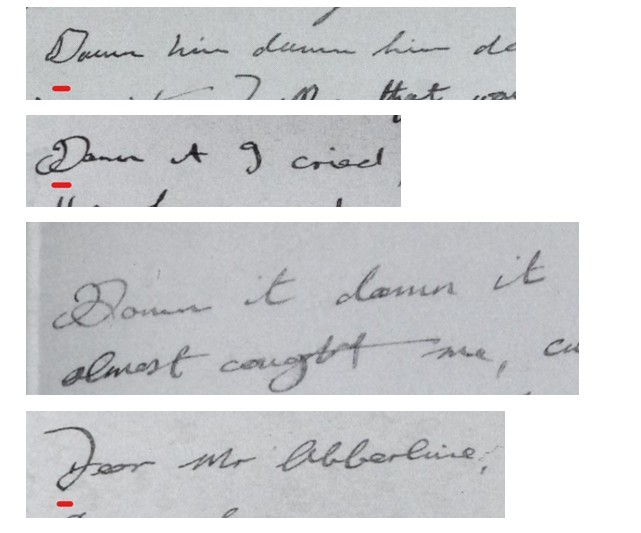 Damn him damn him da
that
Damn it I cried
Damn it damn it
almost caught me, cu
Dear Mr Abberline,